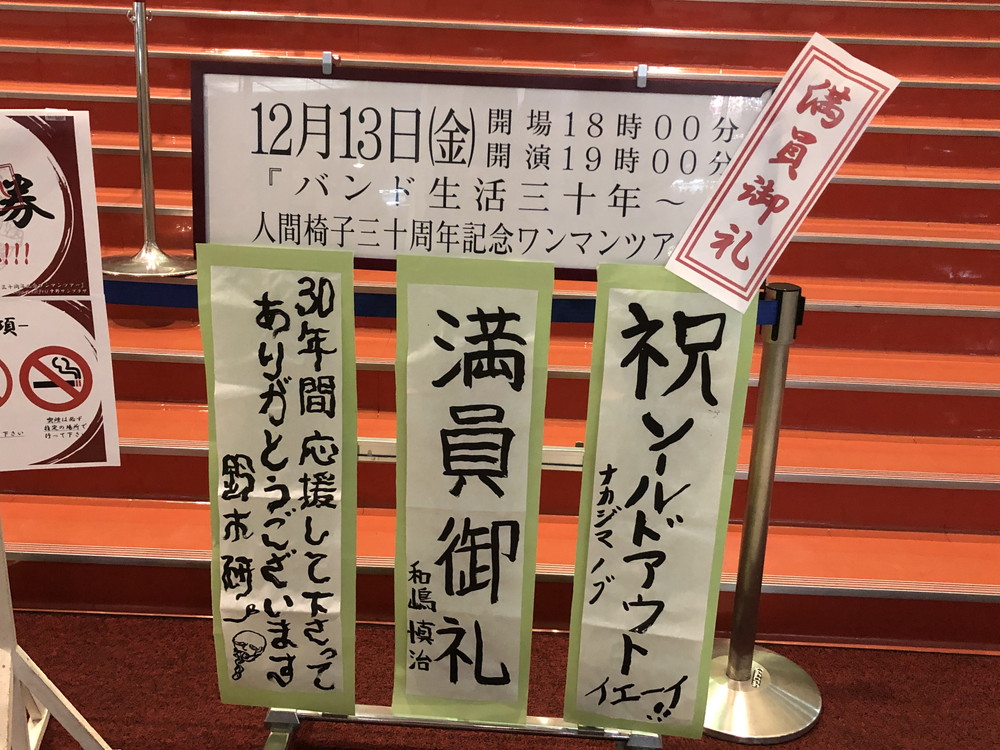 12月13日(金)
開場18時00分
開演19時00分
『バンド生活三十年～
人間椅子三十周年記念ワンマンツア
満員御礼
祝ソールドアウト
イエーイ!!
ナカジマノブ
満員御礼
和嶋慎治
30年間応援して下さって
ありがとうございます
鈴木研一
券
!!!
項-
喫煙は必ず
指定の場所で
行って下さ
下さい